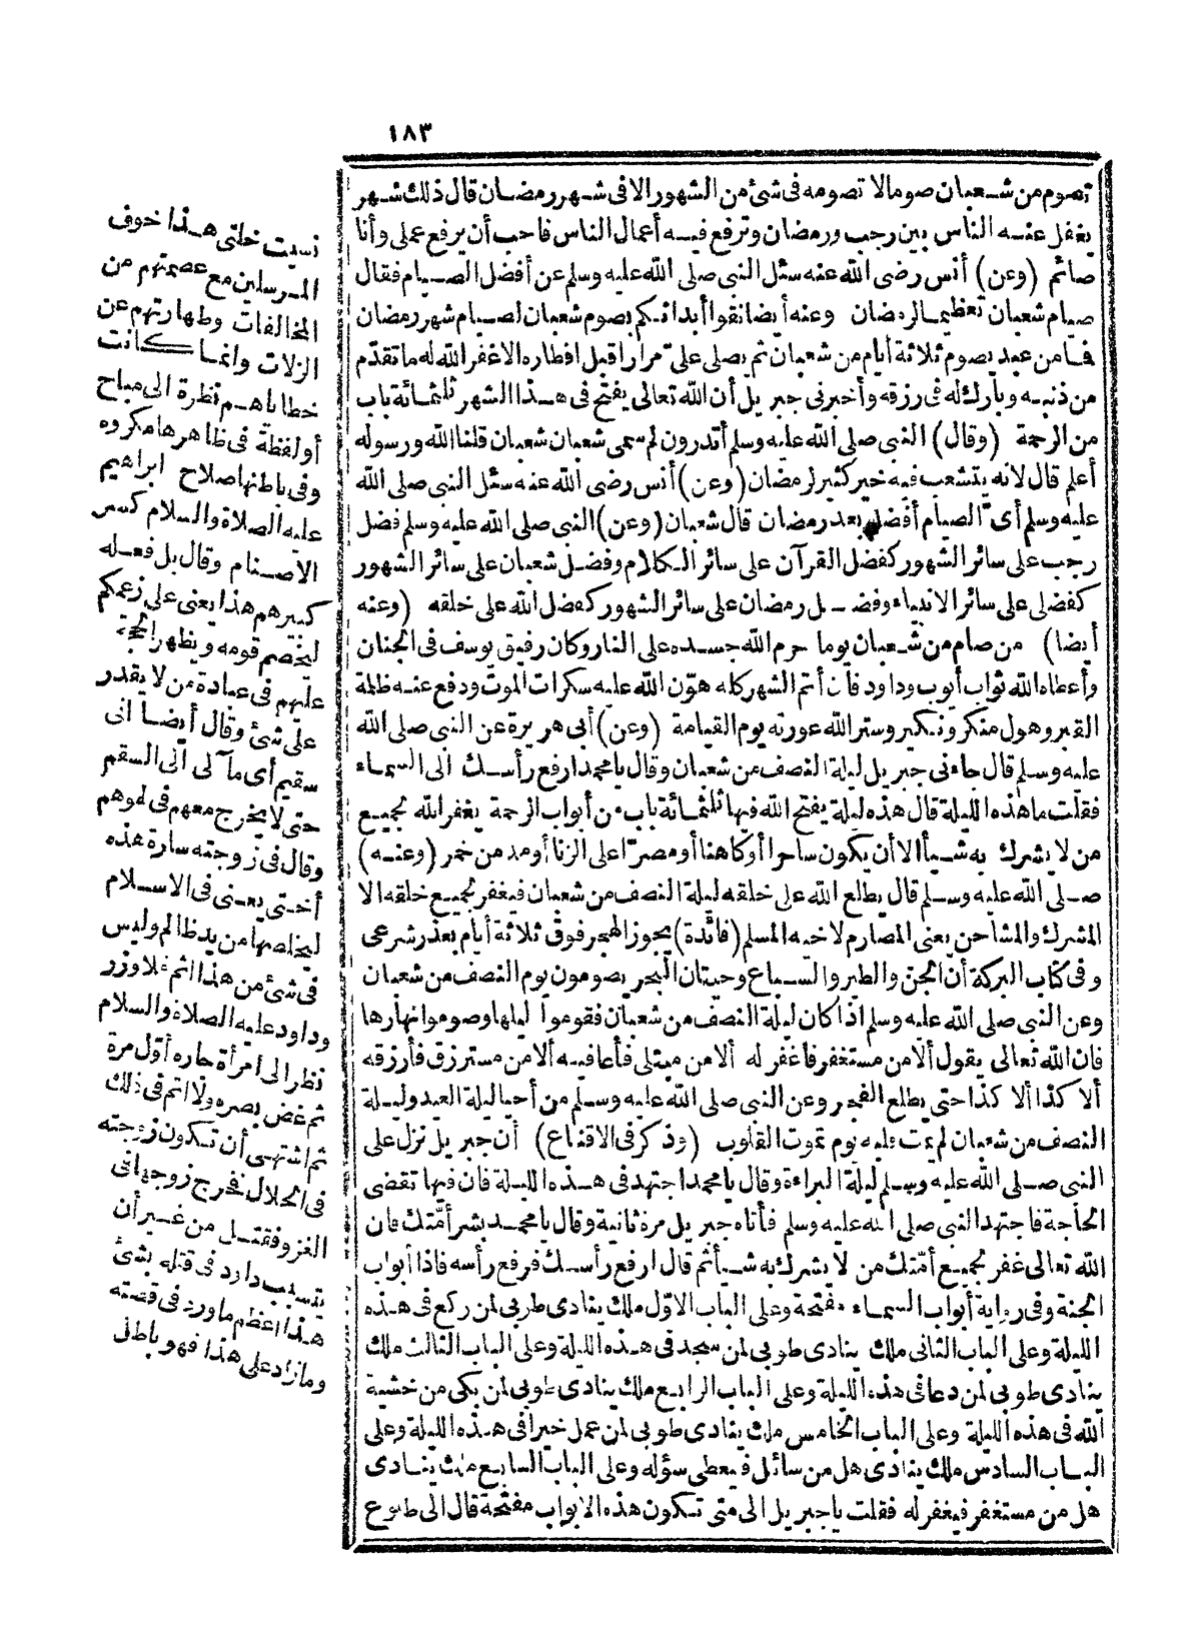 ١٨٣
تصوم من شعبان صوما لا تصومه فى شئ من الشهور الا فى شهر رمضان قال ذلك شهر
يغفل عنه الناس بين رجب ورمضان وترفع فيه أعمال الناس فاحب أن يرفع عملى وأنا
صائم (وعن) أنس رضى الله عنه سئل النبى صلى الله عليه وسلم عن أفضل الصيام فقال
صيام شعبان تعظيما لرمضان وعنه أيضا نقوا أبدانكم بصوم شعبان لصيام شهر رمضان
فما من عبد يصوم ثلاثة أيام من شعبان ثم يصلى علىّ مرارا قبل افطاره الا غفر الله له ما تقدّم
من ذنبه وبارك له فى رزقه وأخبرنى جبريل أن الله تعالى يفتح فى هذا الشهر ثلثمائة باب
من الرحمة (وقال) النبى صلى الله عليه وسلم أتدرون لم سمى شعبان شعبان قلنا الله ورسوله
أعلم قال لانه يتشعب فيه خير كثير لرمضان (وعن) أنس رضى الله عنه سئل النبى صلى الله
عليه وسلم أىّ الصيام أفضل بعد رمضان قال شعبان (وعن) النبى صلى الله عليه وسلم فضل
رجب على سائر الشهور كفضل القرآن على سائر الكلام وفضل شعبان على سائر الشهور
كفضلى على سائر الانبياء وفضل رمضان على سائر الشهور كفضل الله على خلقه (وعنه
أيضا) من صام من شعبان يوما حرم الله جسده على النار وكان رفيق يوسف فى الجنان
وأعطاه الله ثواب أيوب وداود فان أتم الشهر كله هوّن الله عليه سكرات الموت ودفع عنه ظلمة
القبر وهول منكر ونكير وستر الله عورته يوم القيامة (وعن) أبى هريرة عن النبى صلى الله
عليه وسلم قال جاءنى جبريل ليلة النصف من شعبان وقال يا محمد ارفع رأسك الى السماء
فقلت ما هذه الليلة قال هذه ليلة يفتح الله فيها ثلثمائة باب من أبواب الرحمة يغفر الله لجميع
من لا يشرك به شيأ الا أن يكون ساحرا أو كاهنا أو مصرّا على الزنا أو مدمن خمر (وعنه)
صلى الله عليه وسلم قال يطلع الله على خلقه ليلة النصف من شعبان فيغفر لجميع خلقه الا
المشرك والمشاحن يعنى المصارم لاخيه المسلم (فائدة) يجوز الهجر فوق ثلاثة أيام بعذر شرعى
وفى كتاب البركة أن الجن والطير والسباع وحيتان البحر يصومون يوم النصف من شعبان
وعن النبى صلى الله عليه وسلم اذا كان ليلة النصف من شعبان فقوموا ليلها وصوموا نهارها
فان الله تعالى يقول ألا من مستغفر فاغفر له ألا من مبتلى فأعافيه ألا من مسترزق فأرزقه
ألا كذا ألا كذا حتى يطلع الفجر وعن النبى صلى الله عليه وسلم من أحيا ليلة العيد وليلة
النصف من شعبان لم يمت قلبه يوم تموت القلوب (وذكر فى الاقناع) أن جبريل نزل على
النبى صلى الله عليه وسلم ليلة البراءة وقال يا محمد اجتهد فى هذه الليلة فان فيها تقضى
الحاجة فاجتهد النبى صلى الله عليه وسلم فأتاه جبريل مرة ثانية وقال يا محمد بشر أمّتك فان
الله تعالى غفر لجميع أمّتك من لا يشرك به شيأ ثم قال ارفع رأسك فرفع رأسه فاذا أبواب
الجنة وفى رواية أبواب السماء مفتحة وعلى الباب الاوّل ملك ينادى طوبى لمن ركع فى هذه
الليلة وعلى الباب الثانى ملك ينادى طوبى لمن سجد فى هذه الليلة وعلى الباب الثالث ملك
ينادى طوبى لمن دعا فى هذه الليلة وعلى الباب الرابع ملك ينادى طوبى لمن بكى من خشية
الله فى هذه الليلة وعلى الباب الخامس ملك ينادى طوبى لمن عمل خيرا فى هذه الليلة وعلى
الباب السادس ملك ينادى هل من سائل فيعطى سؤله وعلى الباب السابع ملك ينادى
هل من مستغفر فيغفر له فقلت يا جبريل الى متى تكون هذه الابواب مفتحة قال الى طلوع
نسيت خلتى هذا خوف
المرسلين مع عصمتهم من
المخالفات وطهارتهم عن
الزلات وانما كانت
خطاياهم نظرة الى مباح
أو لفظة فى ظاهرها مكروه
وفى باطنها صلاح ابراهيم
عليه الصلاة والسلام كسر
الاصنام وقال بل فعله
كبيرهم هذا يعنى على زعمكم
ليخصم قومه ويظهر الحجة
عليهم فى عبادة من لا يقدر
على شئ وقال أيضا انى
سقيم أى مآلى الى السقم
حتى لا يخرج معهم فى لهوهم
وقال فى زوجته سارة هذه
أختى يعنى فى الاسلام
ليخلصها من يد ظالم وليس
فى شئ من هذا اثم فلا وزر
وداود عليه الصلاة والسلام
نظر الى امرأة جاره أوّل مرة
ثم غض بصره ولا اثم فى ذلك
ثم اشتهى أن تكون زوجته
فى الحلال فخرج زوجها فى
الغزو فقتل من غير أن
يتسبب داود فى قتله بشئ
هذا أعظم ما ورد فى قصته
وما زاد على هذا فهو باطل